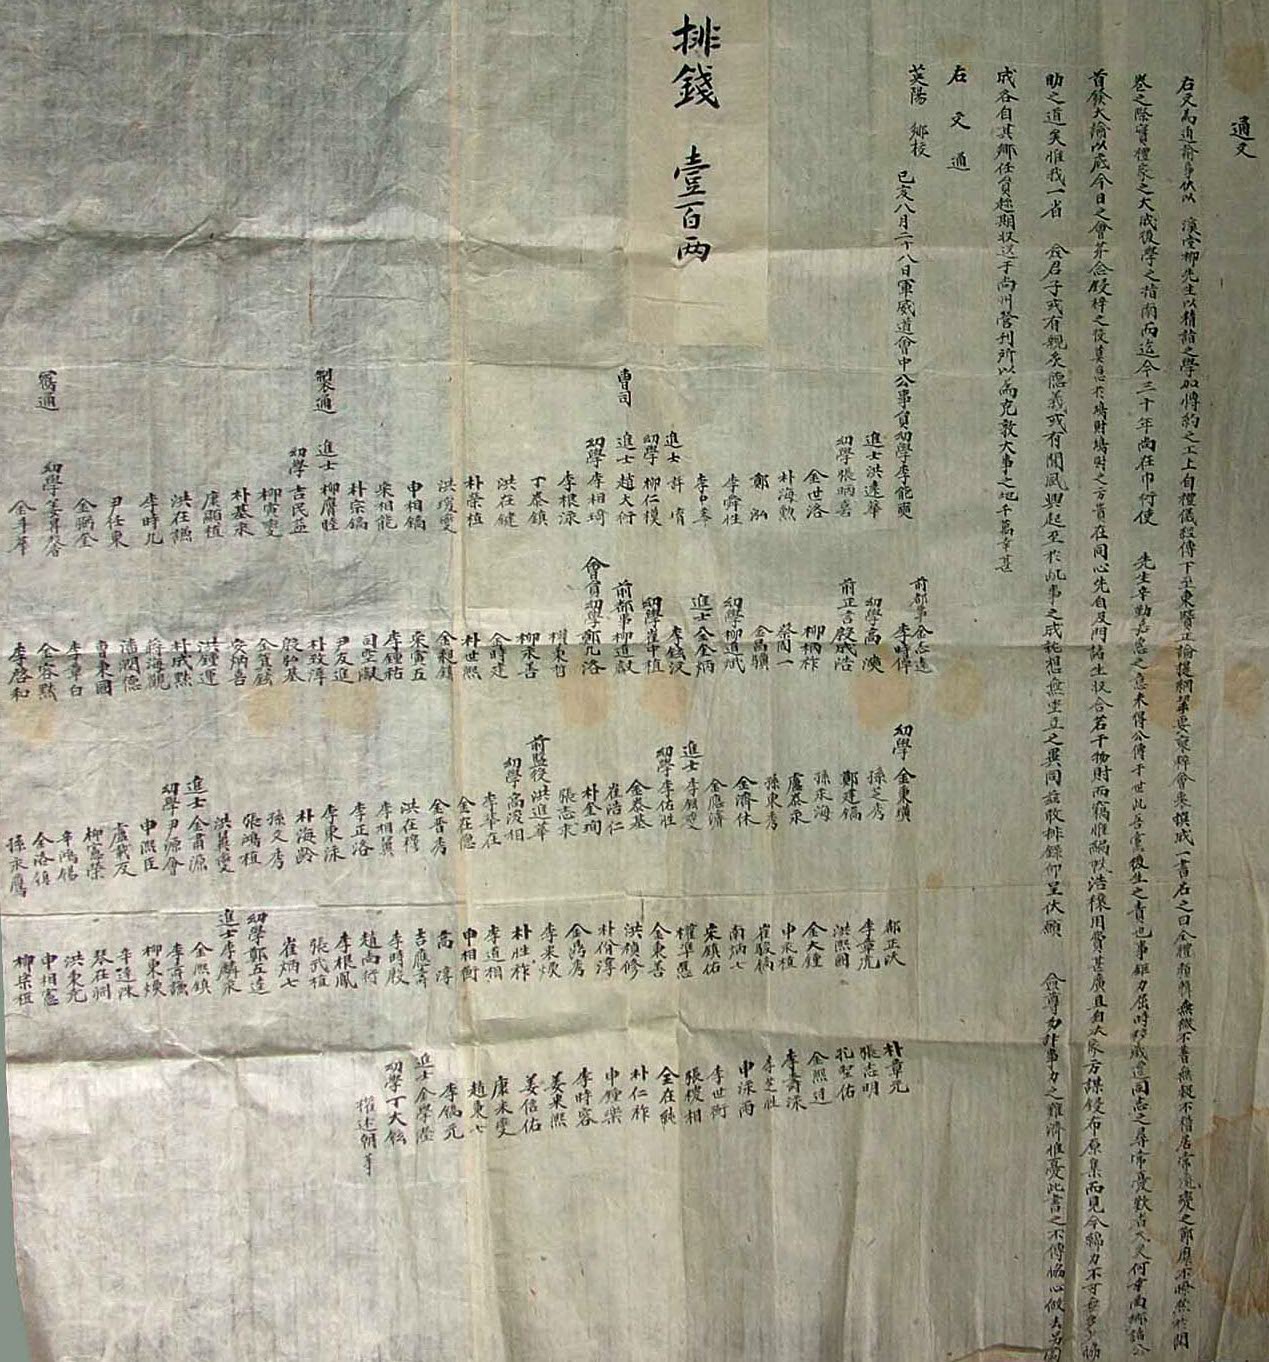 通文
右文爲通諭事伏以 溪堂柳先生以精詣之學加博約之工上自禮儀經傳下至東賢正論提綱挈要彙稡會粲撰成一書名之曰全禮類輯無微不著無疑不稽居常通變之節應不瞭然於開
卷之際實禮家之大成後學之指南而迄今三十年尚在巾衍使 先生辛勤嘉惠之意未得公傳于世此吾黨後生之責也事鉅力屈時移歲遷同志之尋常憂歎者久矣何幸尚鄉諸公
首發大論以底今日之會并念鋟梓之役莫急於鳩財鳩財之方責在同心先自及門諸生収合若干物財而竊惟編帙浩穰用費甚廣且自本家方謀鋟布原集而見今綿力不可無多少協
助之道矣惟我一省 僉君子或有親炙隱義或有聞風興起至於此事之成秖想無埈立之異同玆敢排錄仰呈伏願 僉尊勿計事力之難濟惟憂此書之不傳協心倣去另圖
成各自其鄉任員趁期収送于尚州營刊所以爲克敦大事之地千萬幸甚
右文通
英陽 鄉校
己亥八月二十八日軍威道會中公事員幼學李能奭
進士洪遠華
幼學張炳昌
金世洛
朴海勳
鄭泓
李舜性
李中峯
進士許堉
幼學柳仁模
曹司 進士趙大衍
幼學李相琦
李根泳
丁泰鎮
洪在健
洪璦燮
朴榮植
申相鎬
宋相能
朴宗鎬
製通 進士柳膺睦
幼學吉民益
柳寅燮
朴基來
盧顯植
洪在謙
李時儿
尹任東
金弼全
寫通 幼學姜昇裕
金斗華
前都事金志遠
李時倬
幼學高漢
前正言殷成浩
柳楠祚
蔡周一
金昌驥
幼學柳道斌
進士金金炳
李錢汶
幼學崔中植
前都事柳道獻
會員幼學鄭九洛
權東哲
柳承善
金時建
朴世熙
金親鎮
宋寅五
李鍾祐
司空瀫
尹友進
朴致淳
殷弘基
金質鉉
安炳善
洪鍾運
朴成默
蔣海觀
潘潤德
曹東國
李章白
金容默
李啓和
幼學 金東璜
孫芝秀
鄭建鎬
孫永海
盧泰永
孫東秀
金濟休
金應濟
進士李鎮燮
幼學李佑胜
金泰基
崔浩仁
朴奎珣
張志求
前監役洪進華
幼學高浚相
李華在
金在德
金晉秀
洪在檍
李相翼
李正洛
李東泳
朴海齡
孫又秀
張鴻植
洪翼燮
進士金甫源
幼學尹源會
申熙臣
盧載友
柳憲榮
辛鴻錫
金洛鎮
孫永鷹
都正沃
李章虎
洪熙國
金大鍾
申永植
崔駿鎬
南炳七
宋鎮佑
權準應
金東善
洪楨修
朴佾淳
金禹秀
李來煥
朴胜祚
李道相
申相衡
高淳
吉應壽
李時殷
趙南衍
李根鳳
張武植
崔炳七
幼學鄭五達
進士李麟永
金熙鎮
李壽謙
柳東煥
辛達洙
琴在桐
洪東光
申相憲
柳崇植
朴章元
張志明
孔聖佑
金熙達
李壽深
李芝胜
申深雨
李世衡
張稷相
全在畯
朴仁祚
申鍾樂
李時容
姜東熙
姜信佑
康來燮
趙東七
李鎬光
進士金學濬
幼學丁大鉉
權述朝 等
排錢 壹百兩